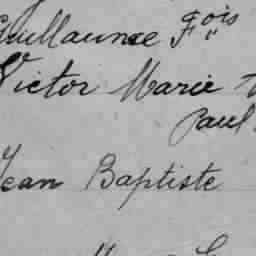 Guillaume Fois
Victor Marie
Paul
Jean Baptiste